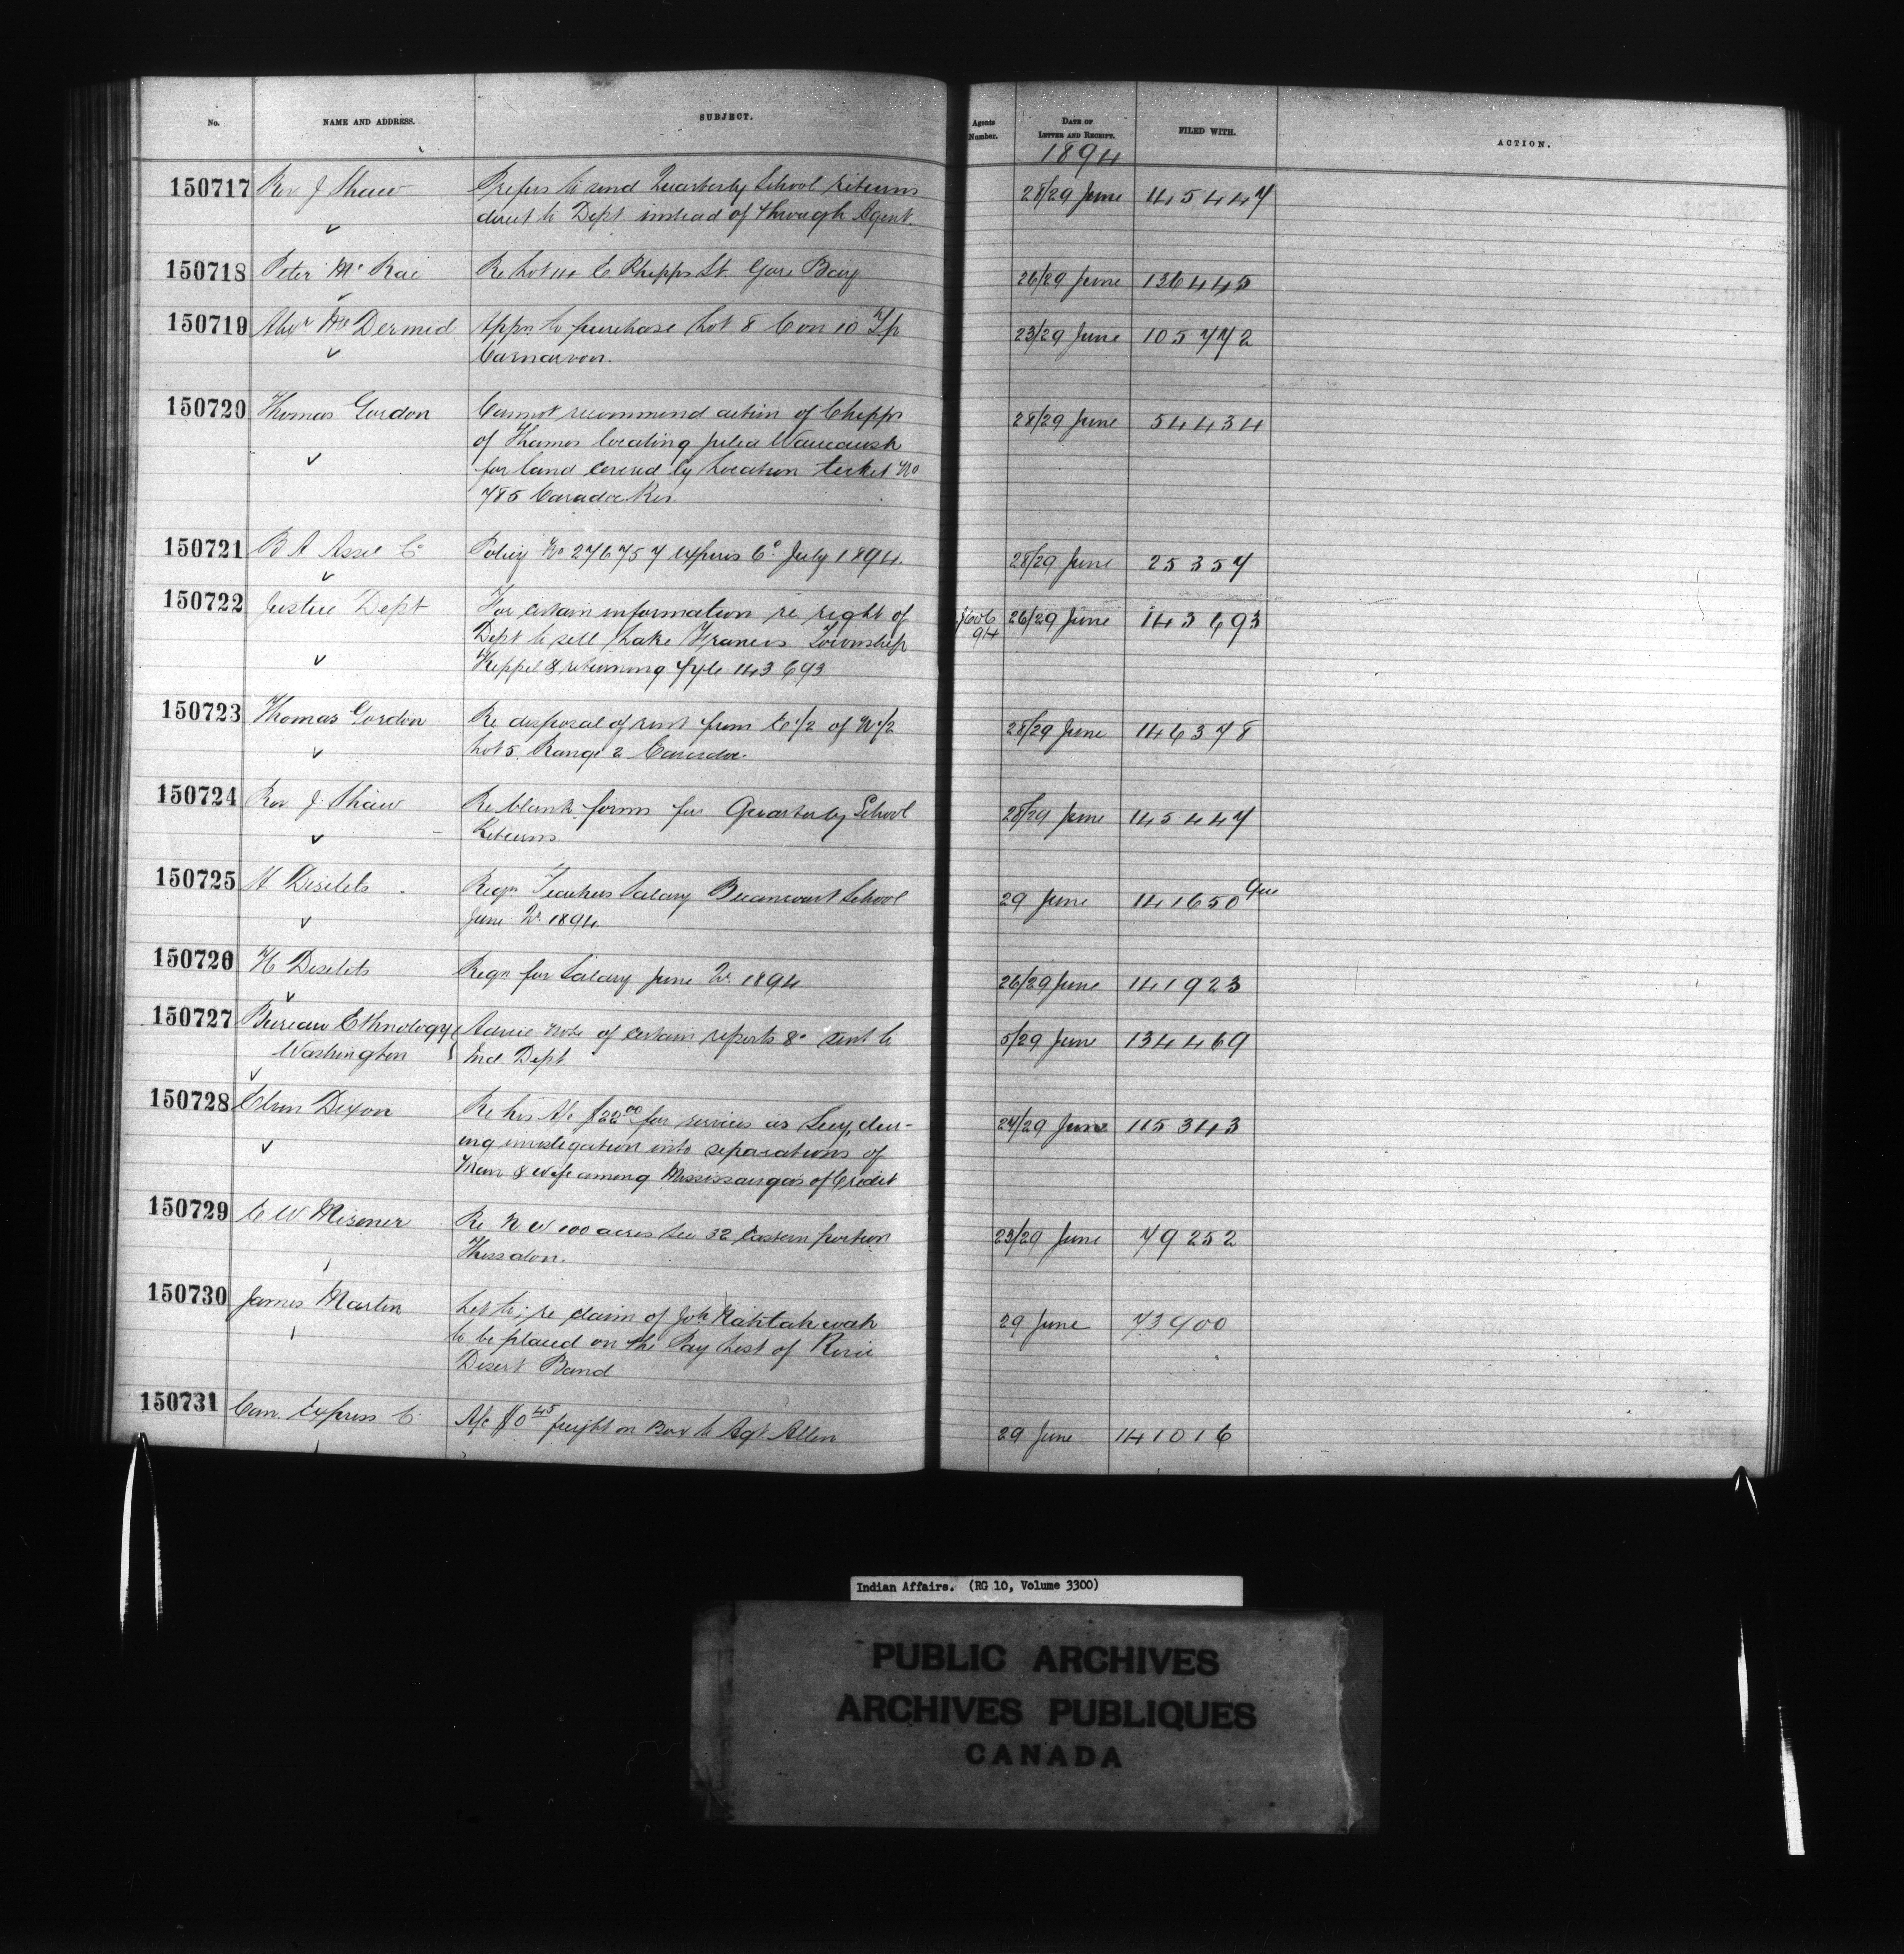 No. NAME AND ADDRESS. SUBJECT. Agents Number. DATE OF LETTER AND RECEIPT. FILED WITH. ACTION.
1894
150717 Rev J Shaw Prefers to send Quarterly School returns 28/29 June 145447
direct to Dept instead of through Agent.
150718 Peter McRae Re Lot 4 E Phipps St. Gore Bay 26/29 June 136445
150719 McDermid Appn to purchase Lot 8 Con 10 Tp 23/29 June 105772
Carnarvon.
150720 Thomas Gordon Cannot recommend action of Chipps 28/29 June 54434
of Thames locating Julia
for land covered by Location ticket No
785 Caradoc Res.
150721 B A Assce Co Policy No 276757 expires July 1894. 28/29 June 25357
150722 Justice Dept For certain information re right of 26/29 June 143693
Dept to sell Lake Francis Township 94
Keppel & returning fyle 143693
150723 Thomas Gordon Re disposal of rent from E 1/2 of N 1/2 28/29 June 146378
Lot 5 Range 2 Caradoc.
150724 Rev J. Shaw Re blank forms for Quarterly School 28/29 June 145447
Returns
150725 H Desilets Reqn Teachers Salary Becancourt School 29 June 141650 Que
June Qr 1894.
150726 H Desilets Reqn for Salary June Qr 1894 26/29 June 141923
150727 Bureau Ethnology Advice Note of certain reports &c sent to 5/29 June 134469
Washington Ind Dept
150728 Dixon Re his A/c $22.00 for services as Secy dur- 27/29 June 115343
ing investigation into separations of
Man & wife among Mississaugas of Credit
150729 C W Misener Re N W 100 acres Sec 32 Eastern portion 23/29 June 79252
Thessalon.
150730 James Martin Let to; re claim of 29 June 73900
to be placed on the Pay List of River
Desert Band
150731 Can. Express Co. A/c $0.45 freight on Box to Agt Allen 29 June 141016
Indian Affairs. (RG 10, Volume 3300)
PUBLIC ARCHIVES
ARCHIVES PUBLIQUES
CANADA